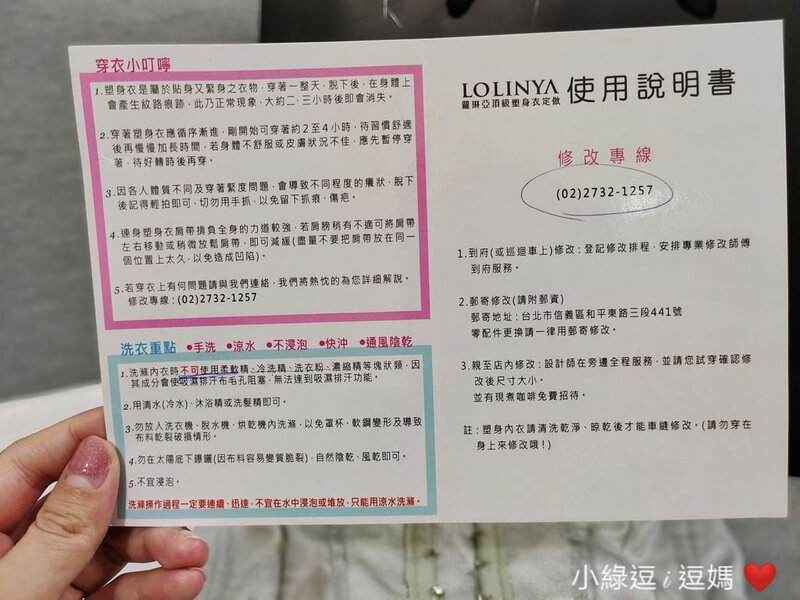 穿衣小叮嚀
1.塑身衣是屬於貼身又緊身之衣物，穿著一整天，脫下後，在身體上
會產生紋路痕跡，此乃正常現象，大約二、三小時後即會消失。
2.穿著塑身衣應循序漸進，剛開始可穿著約2至4小時，待習慣舒適
後再慢慢加長時間，若身體不舒服或皮膚狀況不佳，應先暫停穿
著，待好轉時後再穿。
3.因各人體質不同及穿著緊度問題，會導致不同程度的癢狀，脫下
後記得輕拍即可，切勿用手抓，以免留下抓痕、傷疤。
4.連身塑身衣肩帶揹負全身的力道較強，若肩膀稍有不適可將肩帶
左右移動或稍微放鬆肩帶，即可減緩(盡量不要把肩帶放在同一
個位置上太久，以免造成凹陷)。
5.若穿衣上有何問題請與我們連絡，我們將熱忱的為您詳細解說。
修改專線：(02)2732-1257
洗衣重點 ●手洗 ●涼水 ●不浸泡 ●快沖 ●通風陰乾
1.洗滌內衣時不可使用柔軟精、冷洗精、洗衣粉、濃縮精等塊狀類，因
其成分會使吸濕排汗布毛孔阻塞，無法達到吸濕排汗功能。
2.用清水(冷水)、沐浴精或洗髮精即可。
3.勿放入洗衣機、脫水機、烘乾機內洗滌，以免罩杯、軟鋼變形及導致
布料乾裂破損情形。
4.勿在太陽底下曝曬(因布料容易變質脆裂)，自然陰乾、風乾即可。
5.不宜浸泡。
洗滌操作過程一定要連續、迅速，不宜在水中浸泡或堆放，只能用涼水洗滌。
LOLINYA 使用說明書
蘿琳亞頂級塑身衣定做
修改專線
(02)2732-1257
1.到府(或巡迴車上)修改：登記修改排程，安排專業修改師傅
到府服務。
2.郵寄修改(請附郵資)
郵寄地址：台北市信義區和平東路三段441號
零配件更換請一律用郵寄修改。
3.親至店內修改：設計師在旁邊全程服務，並請您試穿確認修
改後尺寸大小。
並有現煮咖啡免費招待。
註：塑身內衣請清洗乾淨、晾乾後才能車縫修改。(請勿穿在
身上來修改哦！)
小綠逗 i 逗媽